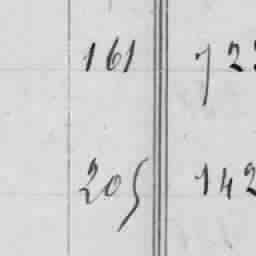 161 722
205 142